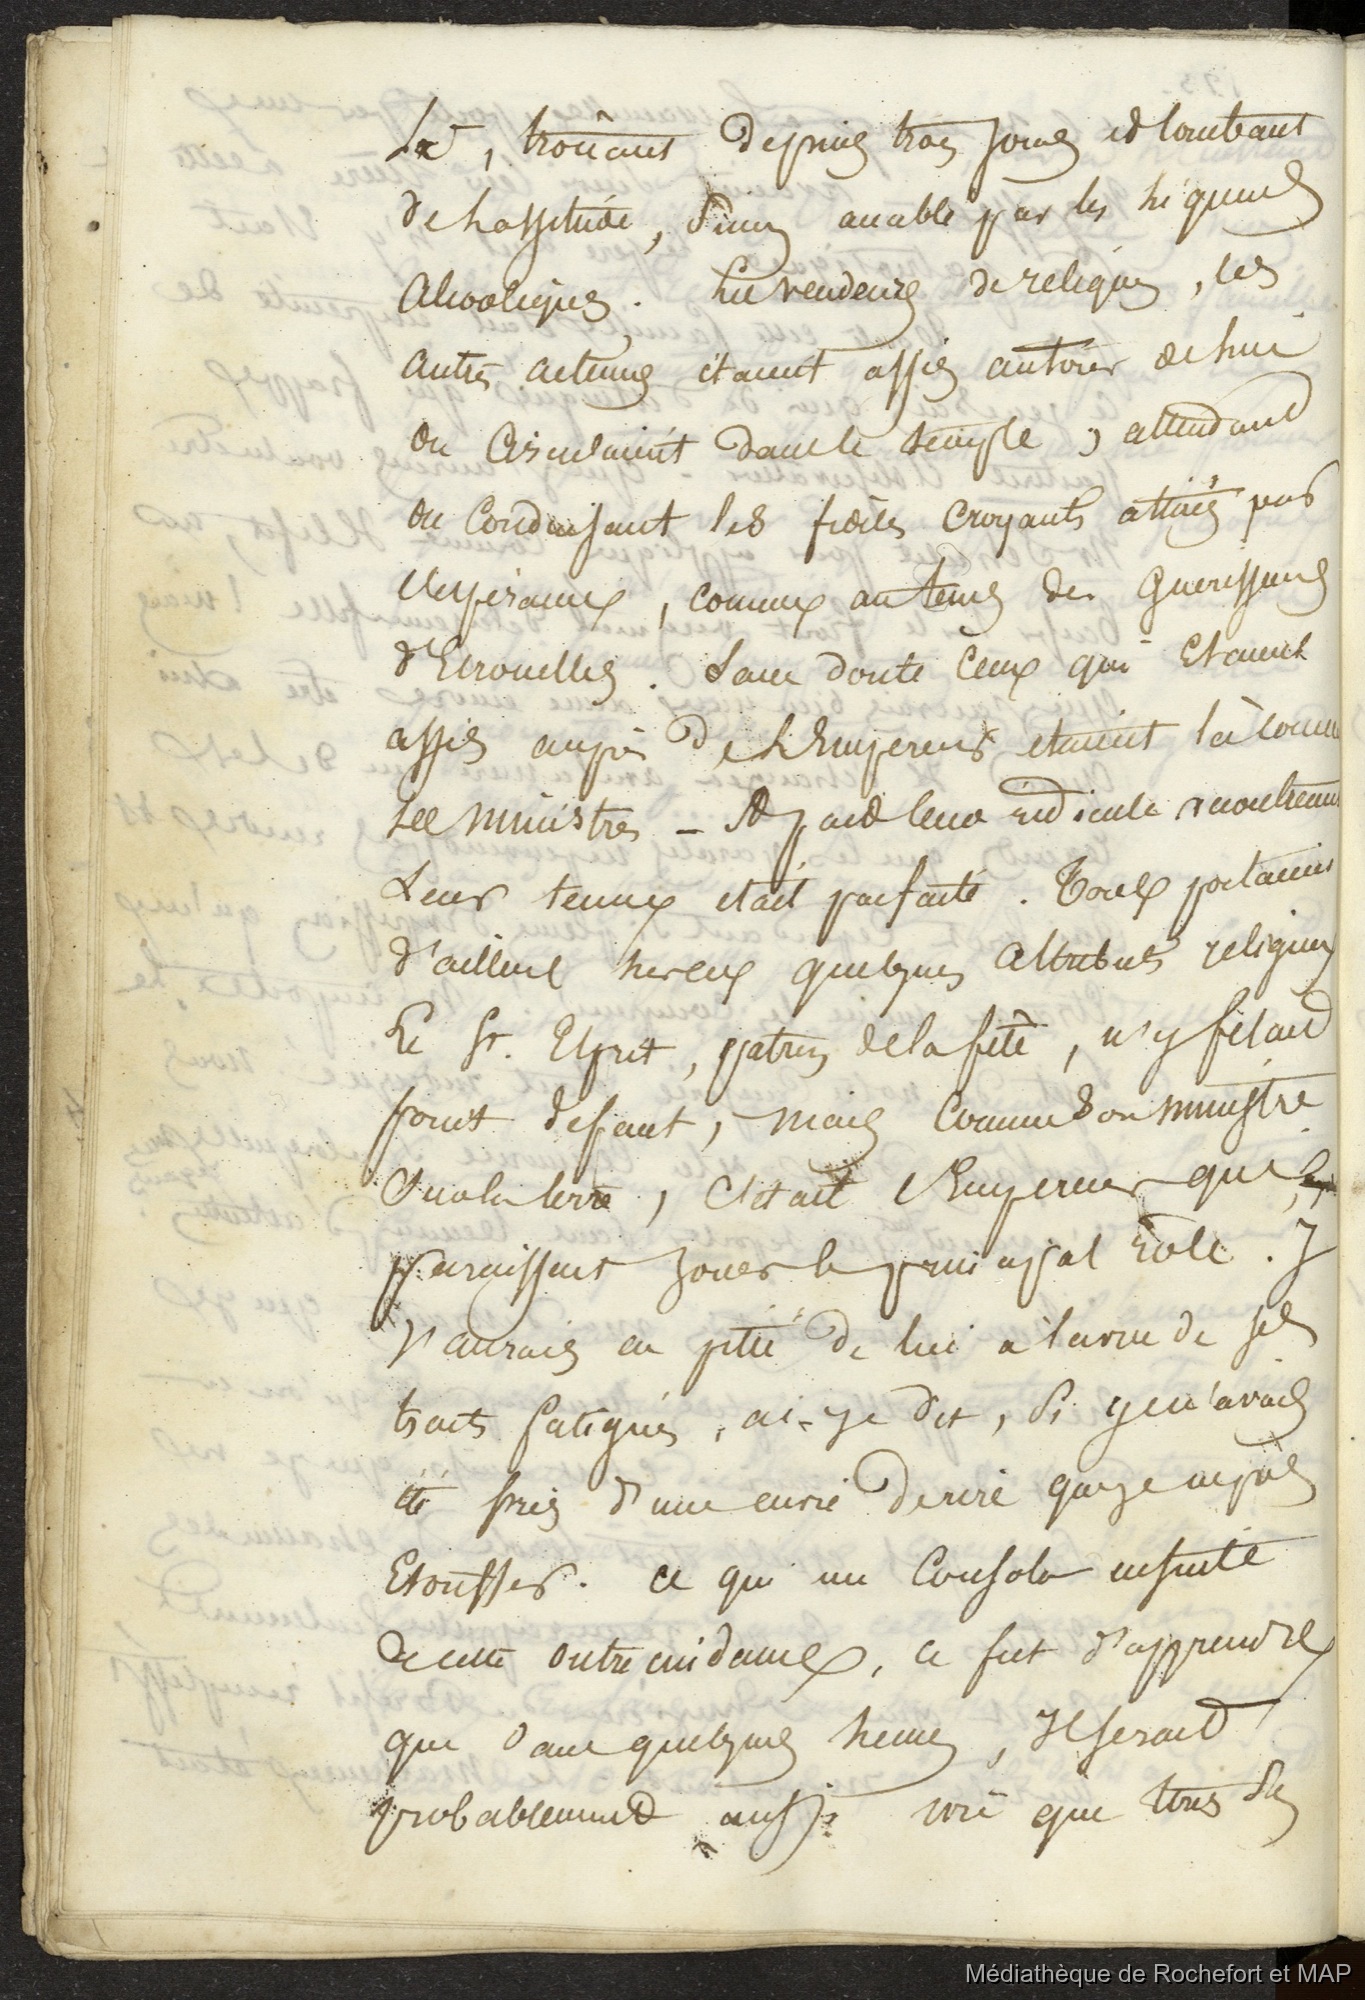 là, trônant depuis trois jours et tombant
de lassitude, sinon accablé par les liqueurs
alcooliques. Les vendeurs de reliques, les
autres acteurs étaient assis autour de lui
ou circulaient dans le temple, attendant
ou conduisant les fidèles croyants attirés par
l'espérance, comme au tems des guerisseurs
d'Ecrouelles. Sans doute ceux qui Etaient
assis auprès de l'Empereur etaient là comme
ses ministres — A part leur ridicule
Leur tenue etait parfaite. Tous portaient
d'ailleurs sur eux quelques attributs religieux
Le St. Esprit, patron de la fête, n'y fesait
point defaut, mais comme son ministre
Sur la terre, C'était l'Empereur qui
paraissait Jouer le principal rôle. J
J'aurais eu pitié de lui a la vue de ses
traits fatigués, ai-je dit, Si je n'avais
été pris d'une envie de rire que je ne pus
Etouffer. ce qui me Consola ensuite
de cette outrecuidance, ce fut d'apprendre
que dans quelques heures, Il serait
probablement aussi ivre que tous Ses
Médiathèque de Rochefort et MAP